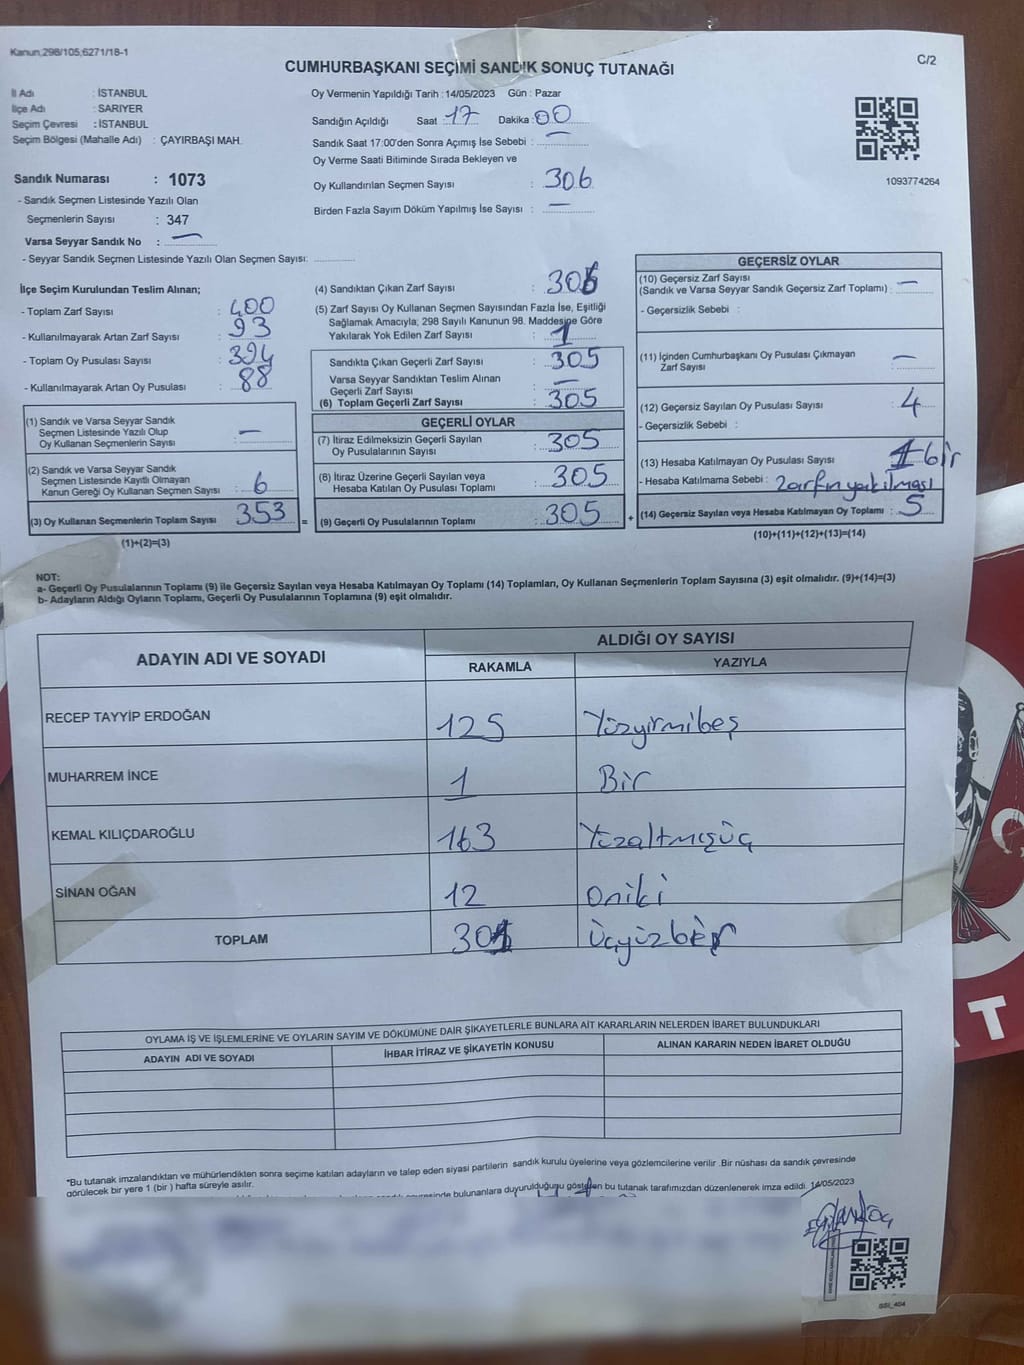 Kanun;298/105;6271/18-1
C/2
CUMHURBAŞKANI SEÇİMİ SANDIK SONUÇ TUTANAĞI
İl Adı : İSTANBUL
İlçe Adı : SARIYER
Seçim Çevresi : İSTANBUL
Seçim Bölgesi (Mahalle Adı) : ÇAYIRBAŞI MAH.
Sandık Numarası : 1073
- Sandık Seçmen Listesinde Yazılı Olan
Seçmenlerin Sayısı : 347
Varsa Seyyar Sandık No : —
- Seyyar Sandık Seçmen Listesinde Yazılı Olan Seçmen Sayısı:
Oy Vermenin Yapıldığı Tarih : 14/05/2023 Gün : Pazar
Sandığın Açıldığı Saat : 17 Dakika : 00
Sandık Saat 17:00'den Sonra Açımış İse Sebebi : —
Oy Verme Saati Bitiminde Sırada Bekleyen ve
Oy Kullandırılan Seçmen Sayısı : 306
Birden Fazla Sayım Döküm Yapılmış İse Sayısı : —
1093774264
İlçe Seçim Kurulundan Teslim Alınan;
- Toplam Zarf Sayısı : 400
- Kullanılmayarak Artan Zarf Sayısı : 93
- Toplam Oy Pusulası Sayısı : 394
- Kullanılmayarak Artan Oy Pusulası : 88
(1) Sandık ve Varsa Seyyar Sandık
Seçmen Listesinde Yazılı Olup
Oy Kullanan Seçmenlerin Sayısı : —
(2) Sandık ve Varsa Seyyar Sandık
Seçmen Listesinde Kayıtlı Olmayan
Kanun Gereği Oy Kullanan Seçmen Sayısı : 6
(3) Oy Kullanan Seçmenlerin Toplam Sayısı : 353
(1)+(2)=(3)
(4) Sandıktan Çıkan Zarf Sayısı : 306
(5) Zarf Sayısı Oy Kullanan Seçmen Sayısından Fazla İse, Eşitliği
Sağlamak Amacıyla; 298 Sayılı Kanunun 98. Maddesine Göre
Yakılarak Yok Edilen Zarf Sayısı : 1
Sandıkta Çıkan Geçerli Zarf Sayısı : 305
Varsa Seyyar Sandıktan Teslim Alınan
Geçerli Zarf Sayısı : —
(6) Toplam Geçerli Zarf Sayısı : 305
GEÇERLİ OYLAR
(7) İtiraz Edilmeksizin Geçerli Sayılan
Oy Pusulalarının Sayısı : 305
(8) İtiraz Üzerine Geçerli Sayılan veya
Hesaba Katılan Oy Pusulası Toplamı : 305
= (9) Geçerli Oy Pusulalarının Toplamı : 305
GEÇERSİZ OYLAR
(10) Geçersiz Zarf Sayısı
(Sandık ve Varsa Seyyar Sandık Geçersiz Zarf Toplamı) : —
- Geçersizlik Sebebi :
(11) İçinden Cumhurbaşkanı Oy Pusulası Çıkmayan
Zarf Sayısı : —
(12) Geçersiz Sayılan Oy Pusulası Sayısı : 4
- Geçersizlik Sebebi :
(13) Hesaba Katılmayan Oy Pusulası Sayısı : 1 bir
- Hesaba Katılmama Sebebi : zarfın yakılması
+ (14) Geçersiz Sayılan veya Hesaba Katılmayan Oy Toplamı : 5
(10)+(11)+(12)+(13)=(14)
NOT:
a- Geçerli Oy Pusulalarının Toplamı (9) ile Geçersiz Sayılan veya Hesaba Katılmayan Oy Toplamı (14) Toplamları, Oy Kullanan Seçmenlerin Toplam Sayısına (3) eşit olmalıdır. (9)+(14)=(3)
b- Adayların Aldığı Oyların Toplamı, Geçerli Oy Pusulalarının Toplamına (9) eşit olmalıdır.
ADAYIN ADI VE SOYADI
ALDIĞI OY SAYISI
RAKAMLA YAZIYLA
RECEP TAYYİP ERDOĞAN 125 Yüzyirmibeş
MUHARREM İNCE 1 Bir
KEMAL KILIÇDAROĞLU 163 Yüzaltmışüç
SİNAN OĞAN 12 Oniki
TOPLAM 301 Üçyüzbir
OYLAMA İŞ VE İŞLEMLERİNE VE OYLARIN SAYIM VE DÖKÜMÜNE DAİR ŞİKAYETLERLE BUNLARA AİT KARARLARIN NELERDEN İBARET BULUNDUKLARI
ADAYIN ADI VE SOYADI İHBAR İTİRAZ VE ŞİKAYETİN KONUSU ALINAN KARARIN NEDEN İBARET OLDUĞU
*Bu tutanak imzalandıktan ve mühürlendikten sonra seçime katılan adayların ve talep eden siyasi partilerin sandık kurulu üyelerine veya gözlemcilerine verilir .Bir nüshası da sandık çevresinde
görülecek bir yere 1 (bir ) hafta süreyle asılır.
bulunanlara duyurulduğunu gösteren bu tutanak tarafımızdan düzenlenerek imza edildi. 14/05/2023
SSI_404
AT